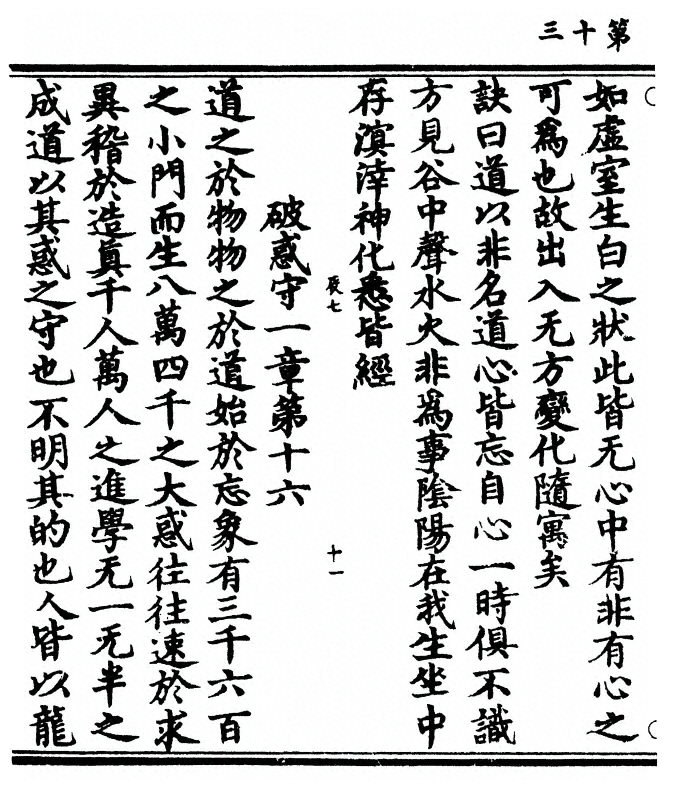 第十三
如虛室生白之狀此皆无心中有非有心之
可爲也故出入无方變化隨寓矣
訣曰道以非名道心皆忘自心一時俱不識
方見谷中聲水火非爲事陰陽在我生坐中
存濵涬神化悉皆經
辰七
十一
破惑守一章第十六
道之於物物之於道始於忘象有三千六百
之小門而生八萬四千之大惑往往速於求
異稽於造真千人萬人之進學无一无半之
成道以其惑之守也不明其的也人皆以龍